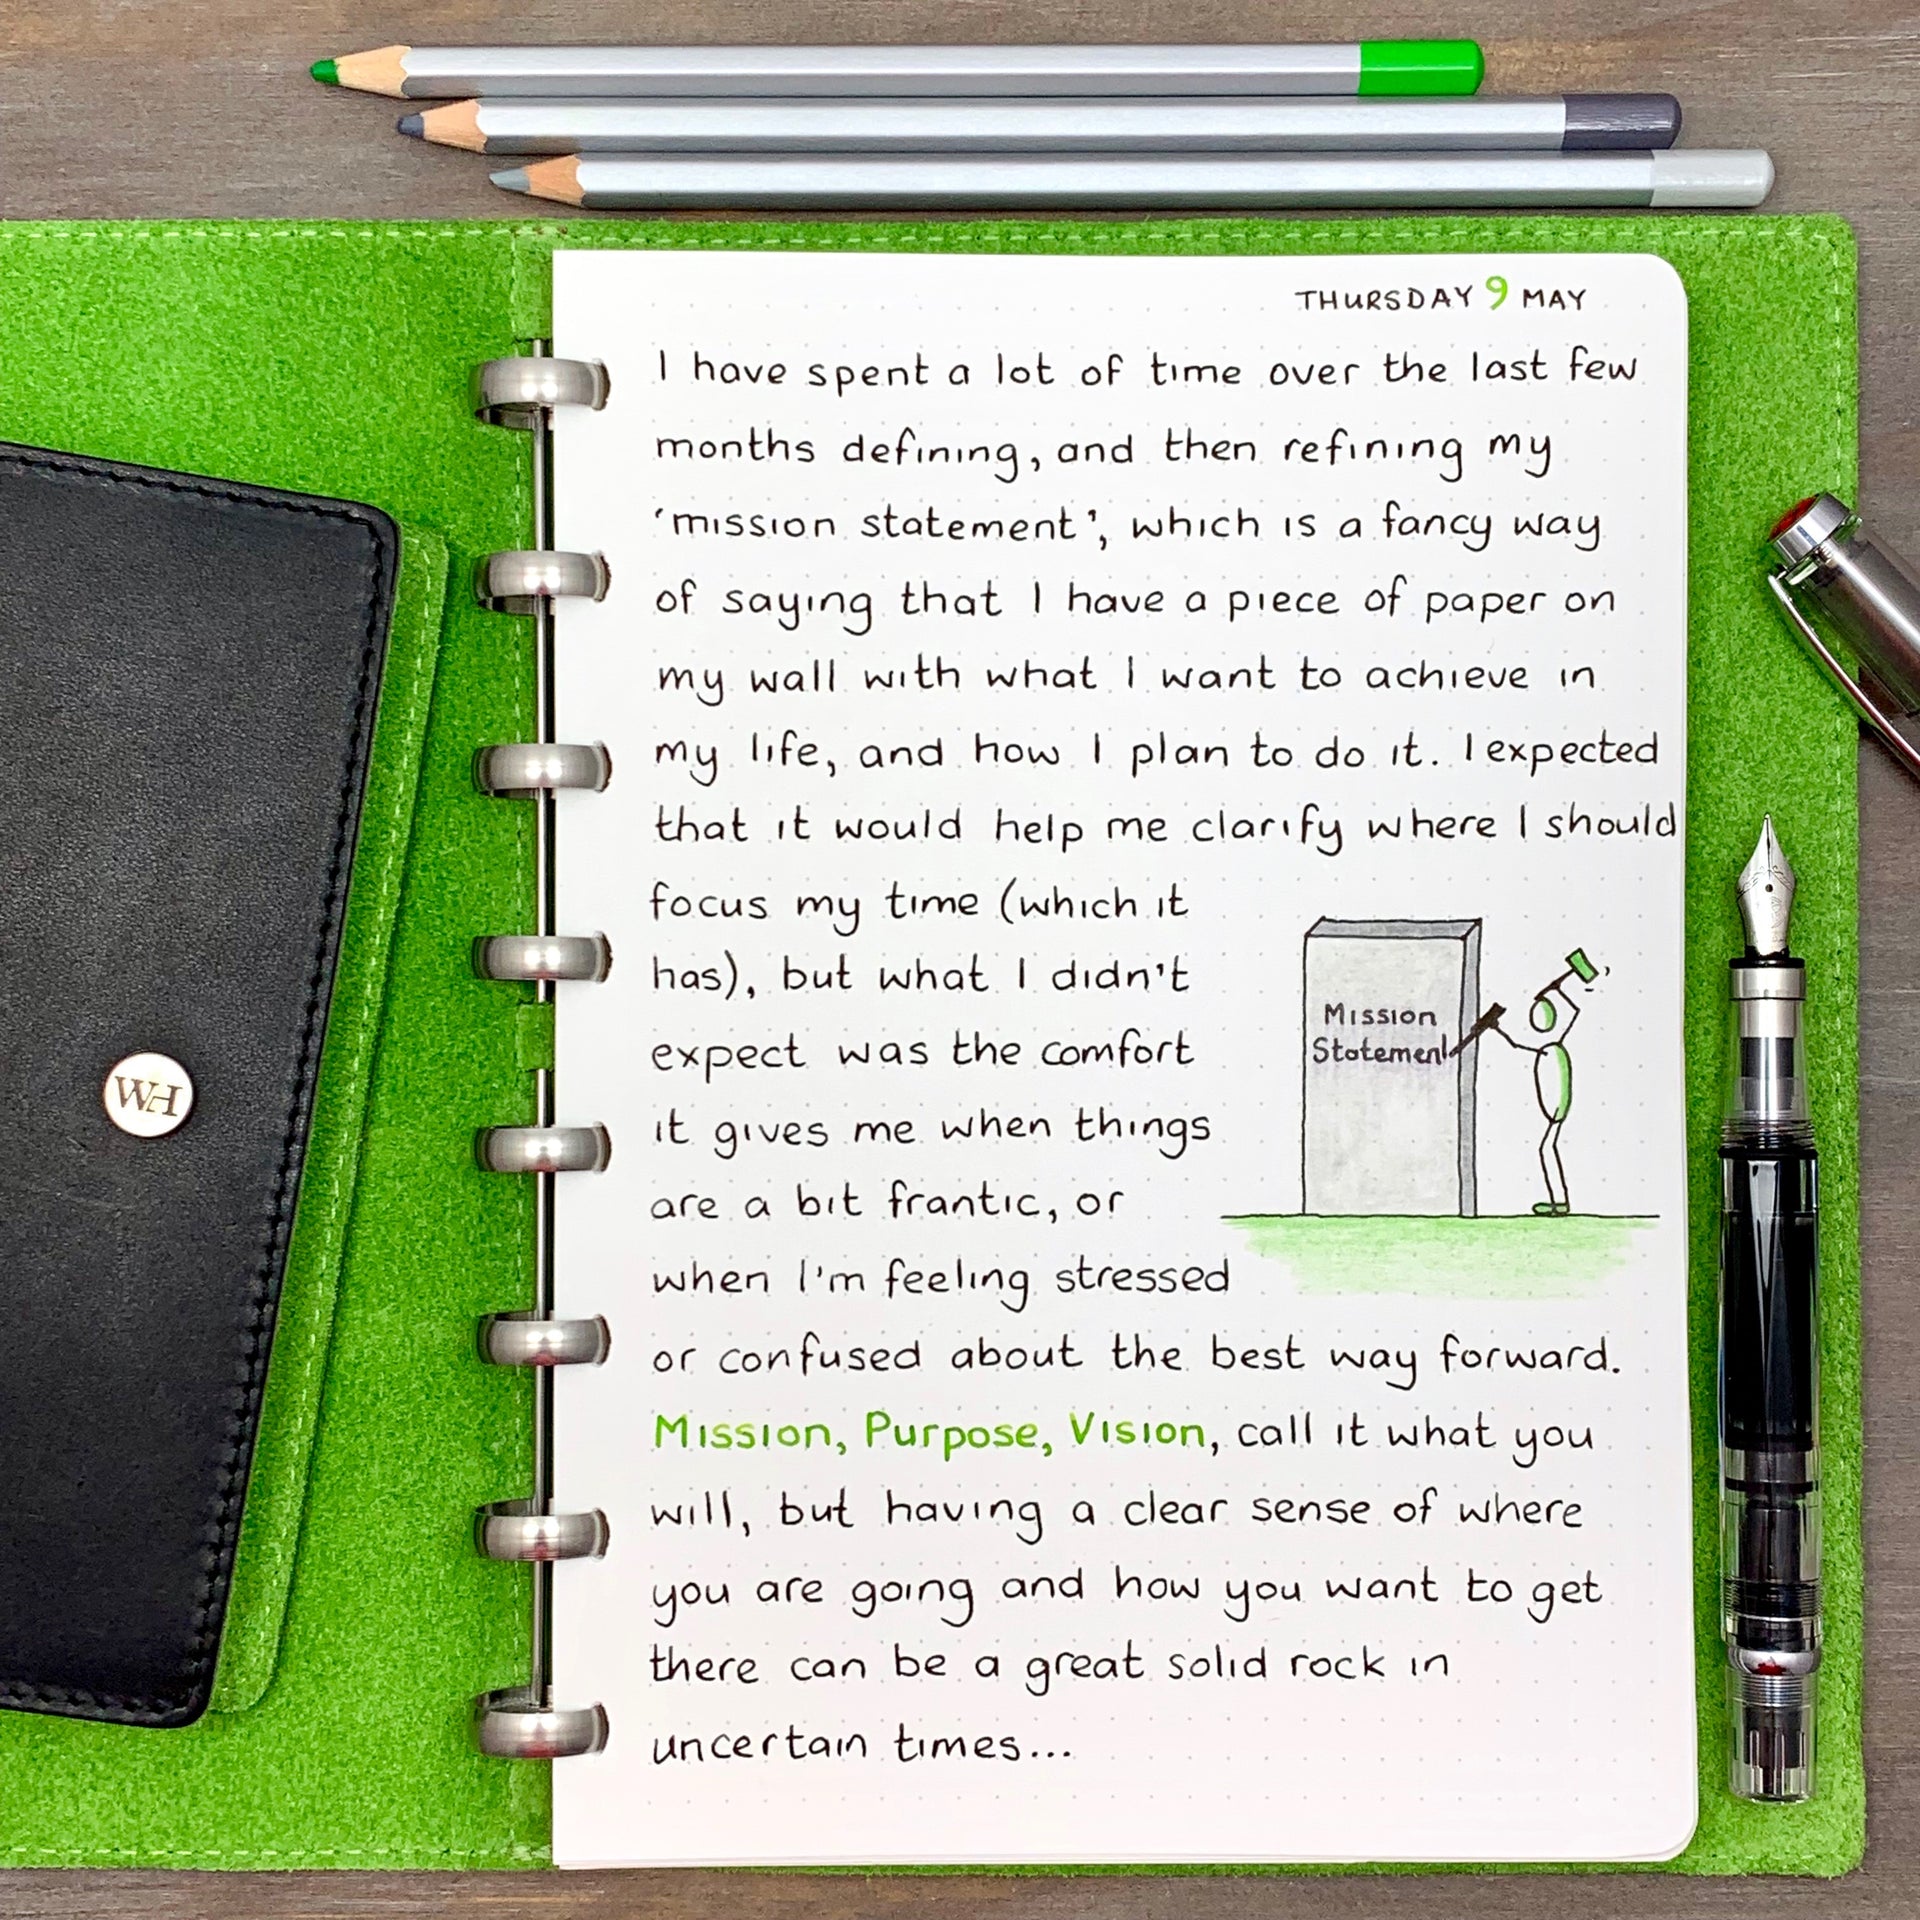 THURSDAY 9 MAY
I have spent a lot of time over the last few
months defining, and then refining my
'mission statement', which is a fancy way
of saying that I have a piece of paper on
my wall with what I want to achieve in
my life, and how I plan to do it. I expected
that it would help me clarify where I should
focus my time (which it
has), but what I didn't
expect was the comfort
it gives me when things
are a bit frantic, or
when I'm feeling stressed
or confused about the best way forward.
Mission, Purpose, Vision, call it what you
will, but having a clear sense of where
you are going and how you want to get
there can be a great solid rock in
uncertain times...
Mission
Statement
WH